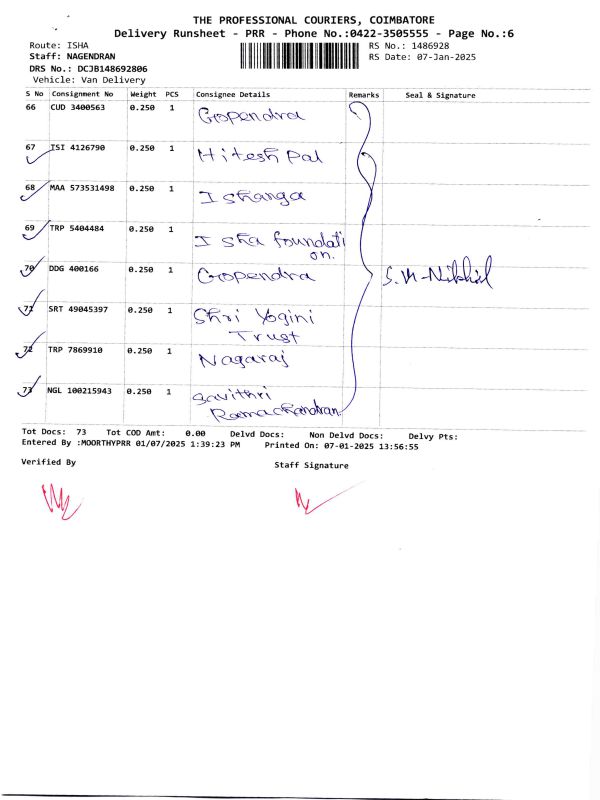 THE PROFESSIONAL COURIERS, COIMBATORE
Delivery Runsheet - PRR - Phone No.:0422-3505555 - Page No.:6
Route: ISHA RS No.: 1486928
Staff: NAGENDRAN RS Date: 07-Jan-2025
DRS No.: DCJB148692806
Vehicle: Van Delivery
S No Consignment No Weight PCS Consignee Details Remarks Seal & Signature
66 CUD 3400563 0.250 1 Gopendra
67 ISI 4126790 0.250 1 Hitesh Pal
68 MAA 573531498 0.250 1 Ishanga
69 TRP 5404484 0.250 1 Isha foundati
on.
70 DDG 400166 0.250 1 Gopendra S.M-Nikhil
71 SRT 49045397 0.250 1 Shri Yogini
Trust
72 TRP 7869910 0.250 1 Nagaraj
73 NGL 100215943 0.250 1 Savithri
Ramachandran
Tot Docs: 73 Tot COD Amt: 0.00 Delvd Docs: Non Delvd Docs: Delvy Pts:
Entered By :MOORTHYPRR 01/07/2025 1:39:23 PM Printed On: 07-01-2025 13:56:55
Verified By Staff Signature